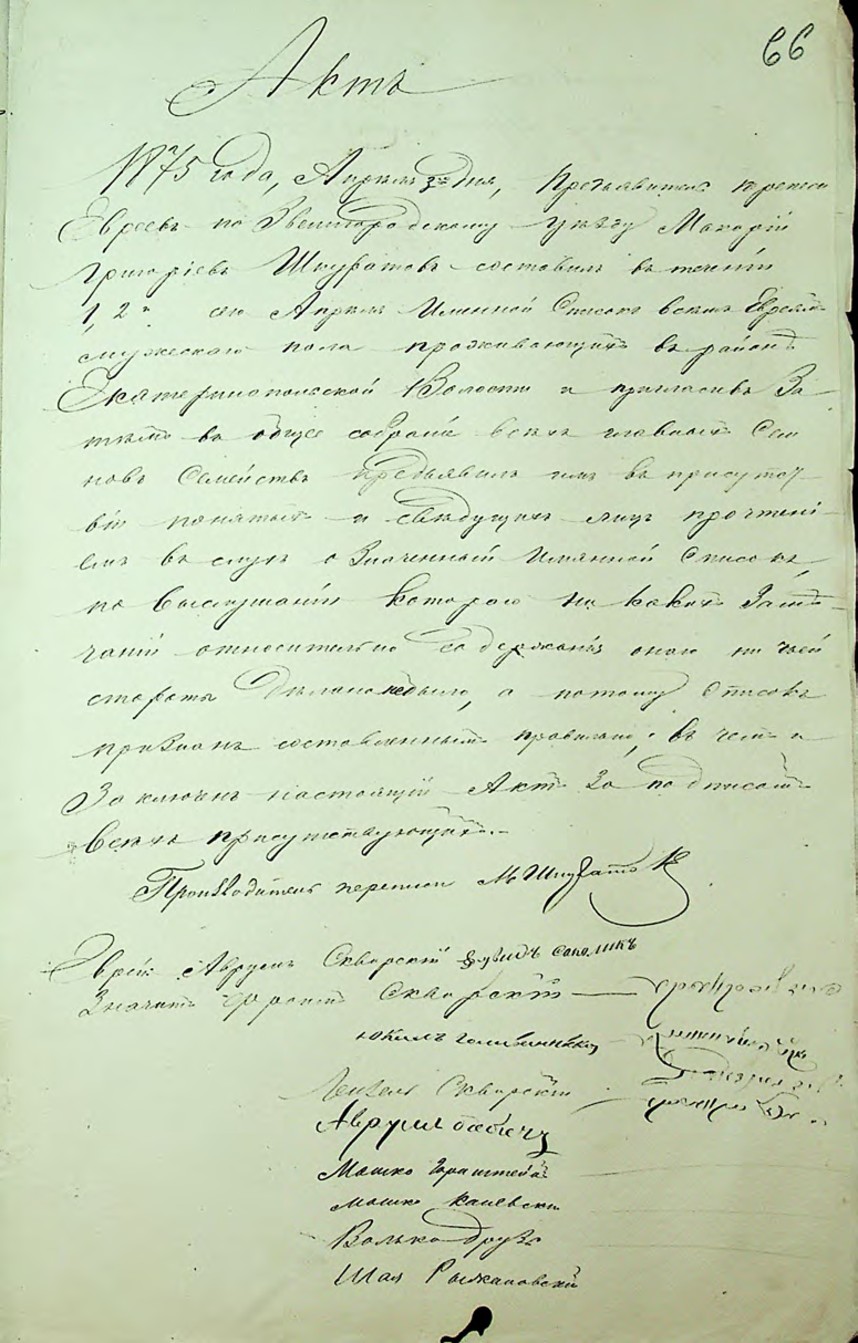 66
Актъ
1875 года, Апреля 3го дня, Предъявитель переписи
Евреевъ по Звенигородскому уезду Макарій
Григоріевъ Шкуратовъ составилъ въ теченіи
1, 2 сего Апреля Именной Списокъ всѣхъ Евреевъ
мужескаго пола проживающихъ въ районѣ
Екатеринопольской Волости и пригласивъ За
тѣмъ въ общее собраніе всѣхъ главныхъ Чле
новъ Семействъ предъявилъ имъ въ присутст
віи понятыхъ и свѣдущихъ лицъ прочтені
емъ въ слухъ означенный Имянной Списокъ,
по выслушаніи котораго ни какихъ Замѣ
чаній относительно содержанія онаго ни чьей
стороны дѣлано небыло, а потому Списокъ
признанъ составленнымъ правильно; въ чемъ и
Заключенъ настоящій Актъ За подписомъ
всѣхъ присутствующихъ.
Производитель переписи М Шкуратовъ
Еврей Аврумъ Сквирскій Дувидъ Соколикъ
Сквирскій
Юкилъ
Лейзеръ Сквирскій
Аврумъ Бабичъ
Мошко
Мошко Каневски
Волько Друзь
Шая Рыжановскій